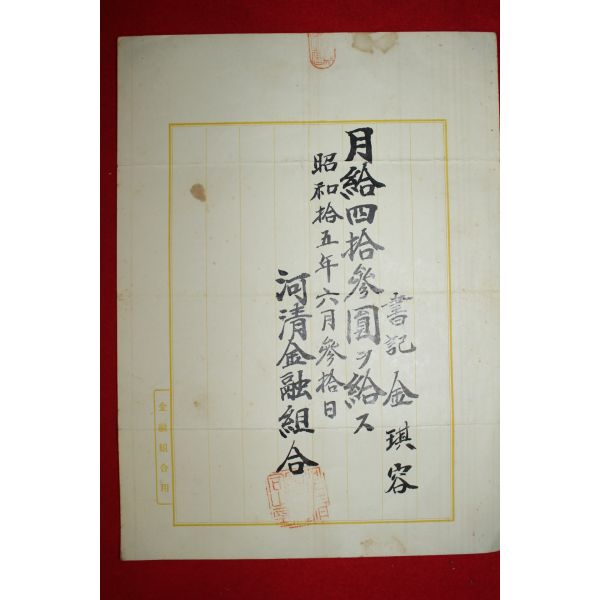 書記 金琪容
月給四拾參圓ヲ給ス
昭和拾五年六月參拾日
河清金融組合
金融組合用